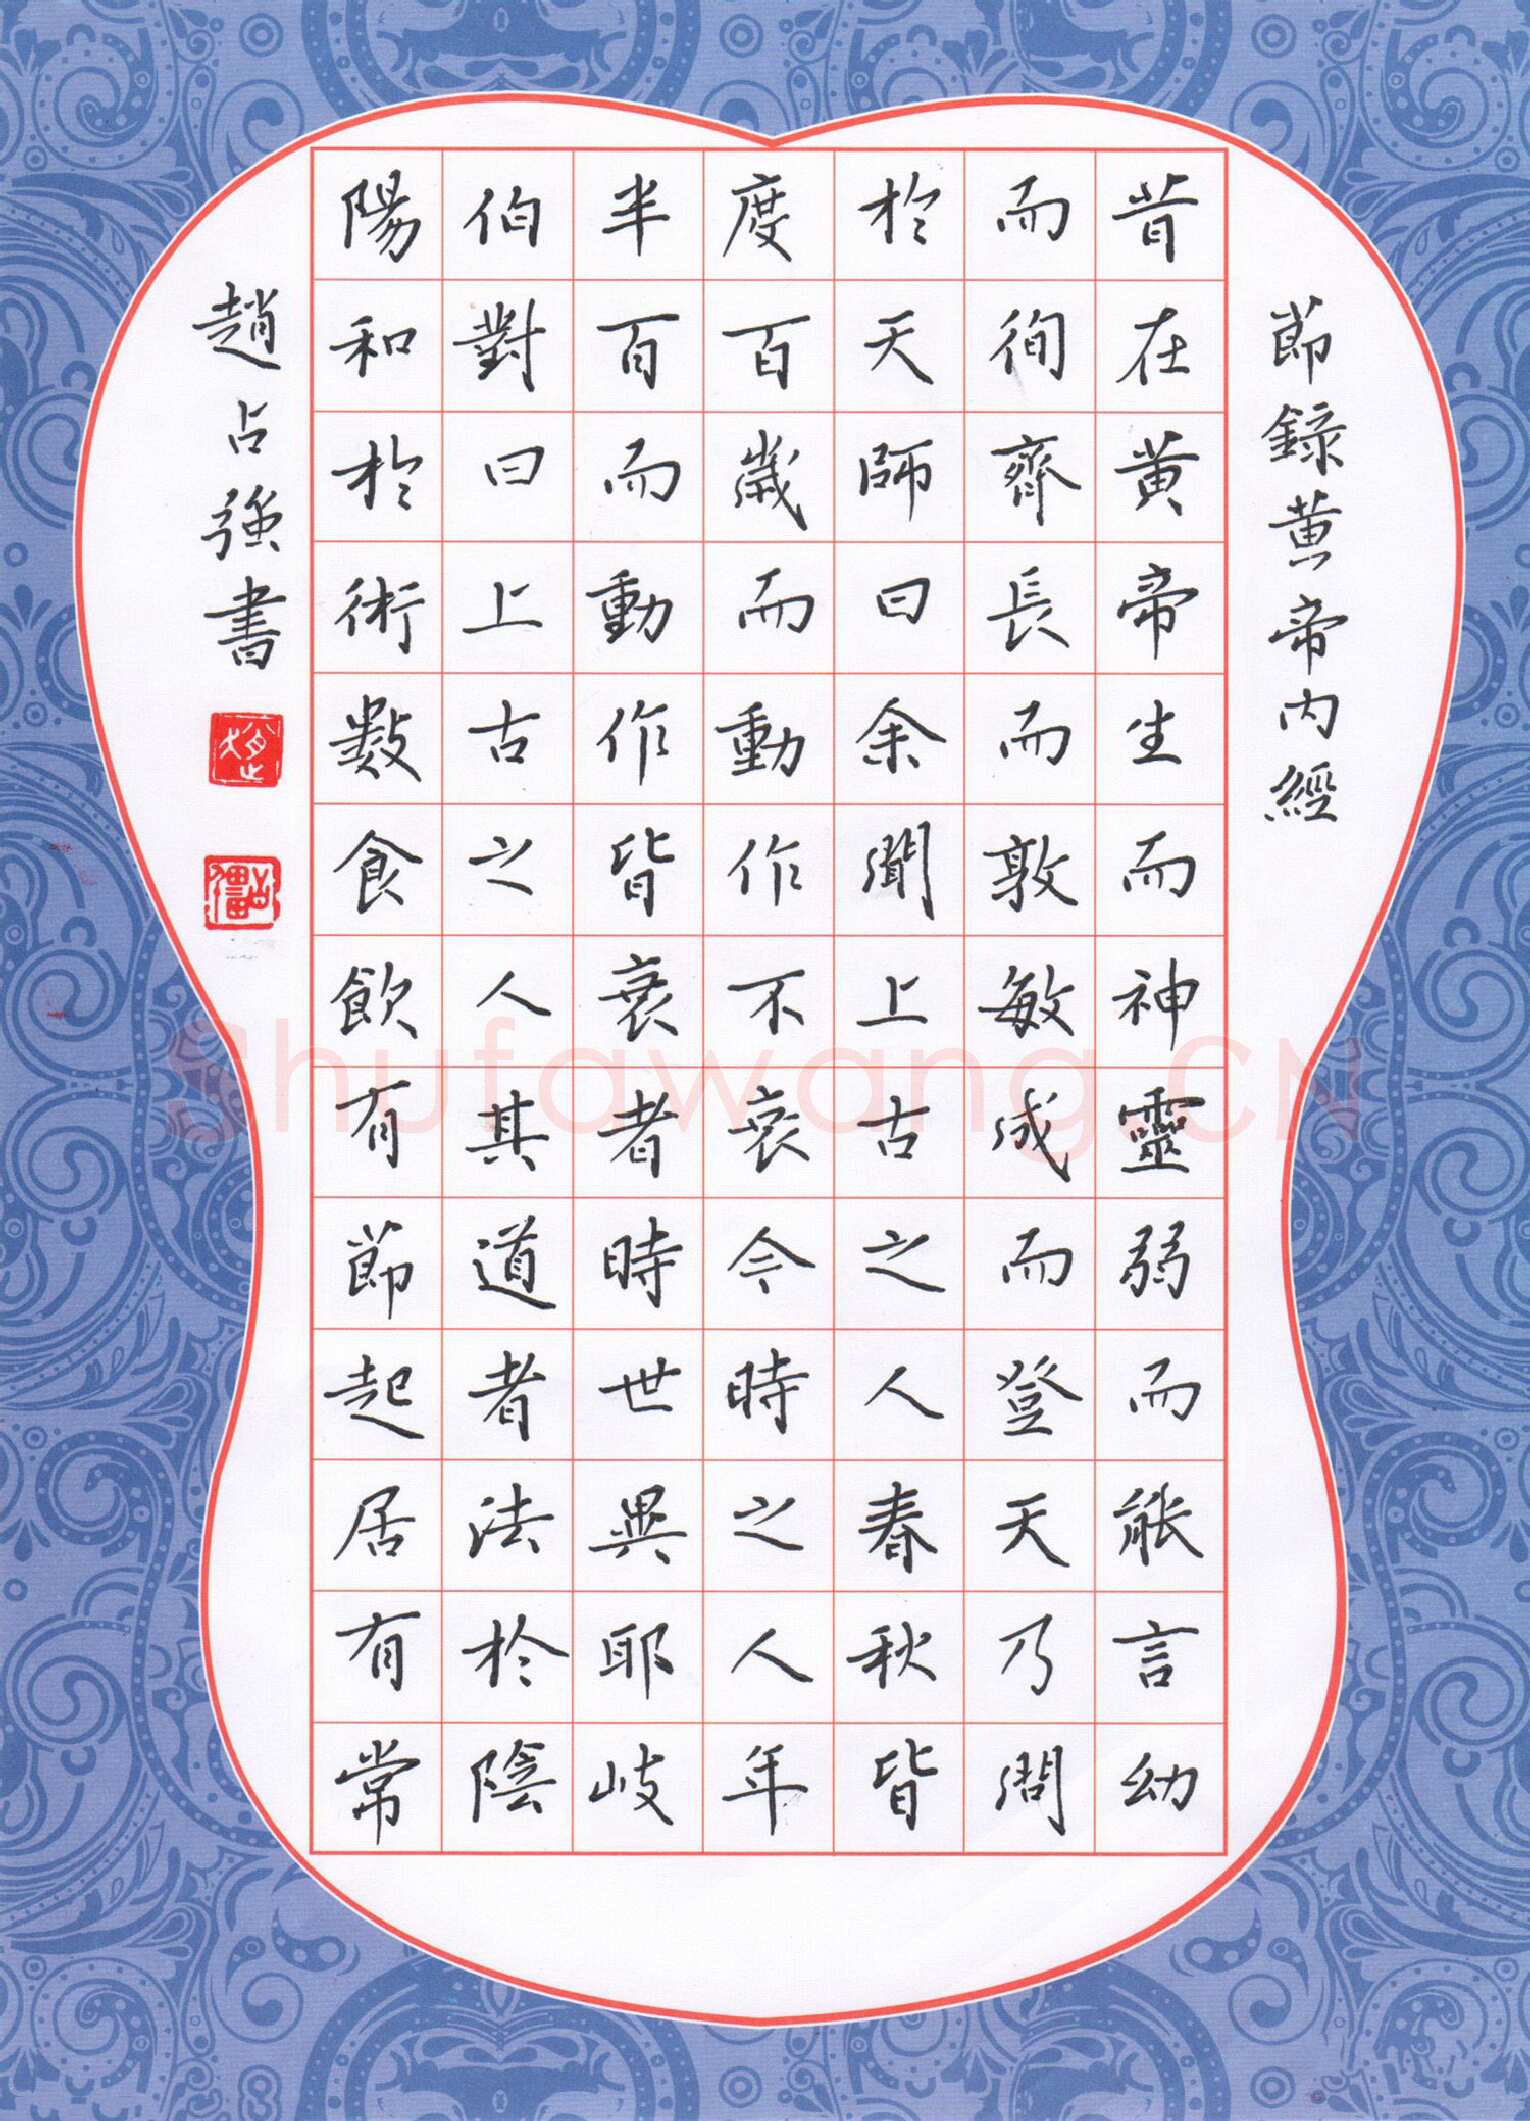 節錄黄帝内經
昔在黄帝生而神靈弱而能言幼
而徇齊長而敦敏成而登天乃問
於天師曰余聞上古之人春秋皆
度百歲而動作不衰今時之人年
半百而動作皆衰者時世異耶岐
伯對曰上古之人其道者法於陰
陽和於術數食飲有節起居有常
趙占強書
Shufawang.CN